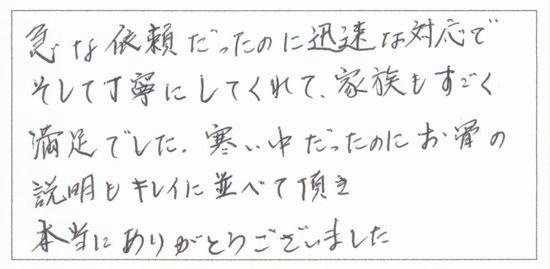 急な依頼だったのに迅速な対応で
そして丁寧にしてくれて、家族もすごく
満足でした。寒い中だったのにお骨の
説明もキレイに並べて頂き
本当にありがとうございました